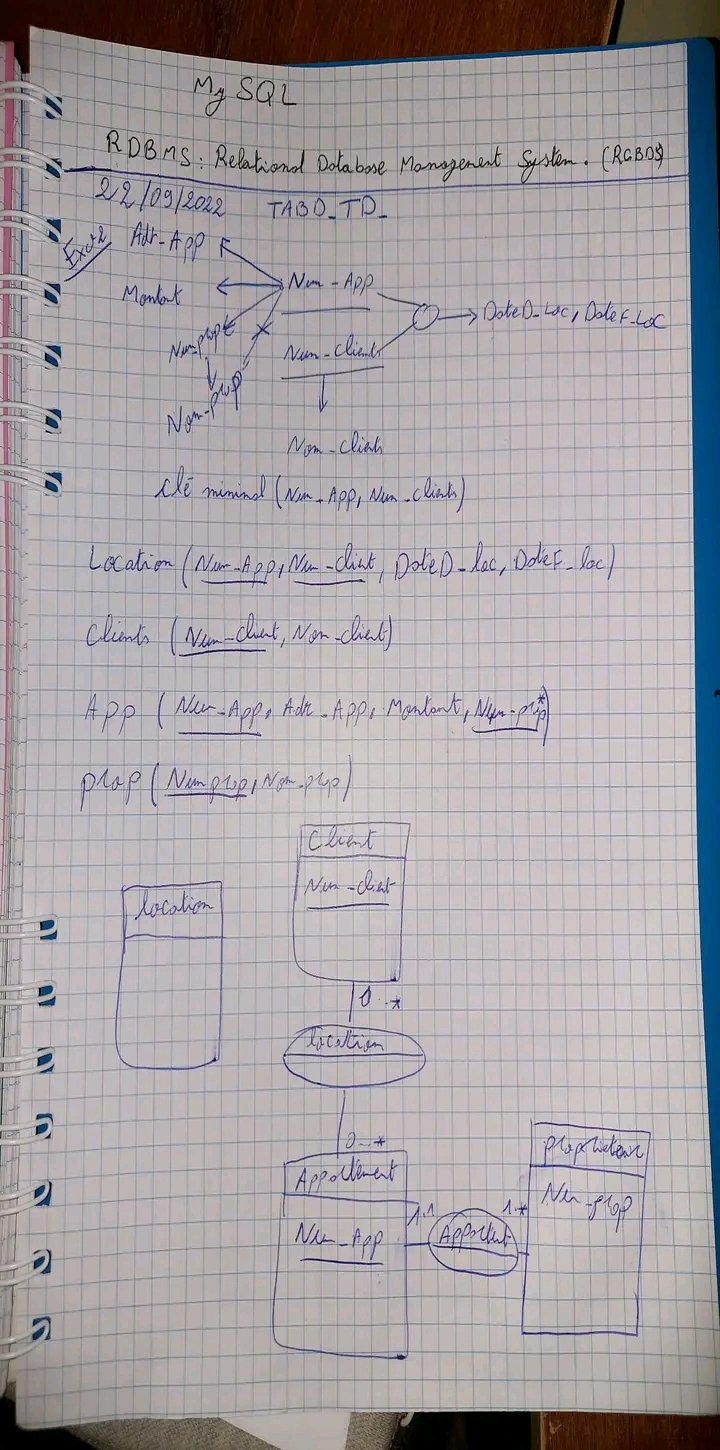 My SQL
RDBMS : Relational Database Management System. (RGBDS)
22/09/2022 TABD_TD_
Exo2
Adr-App
Num-App
Montant
DateD-Loc, DateF-Loc
Num-prop
Num-Clients
Nom-prop
Nom-Clients
clé minimal (Num-App, Num-Clients)
Location (Num-App, Num-client, DateD-loc, DateF-loc)
Clients (Num-client, Nom-client)
App (Num-App, Adr-App, Montant, Num-prop*)
prop (Numprop, Nom-prop)
Client
Num-client
location
0..*
location
0..*
Appartement
Num-App
1.1
Appartient
1.*
proprietaire
Num-prop